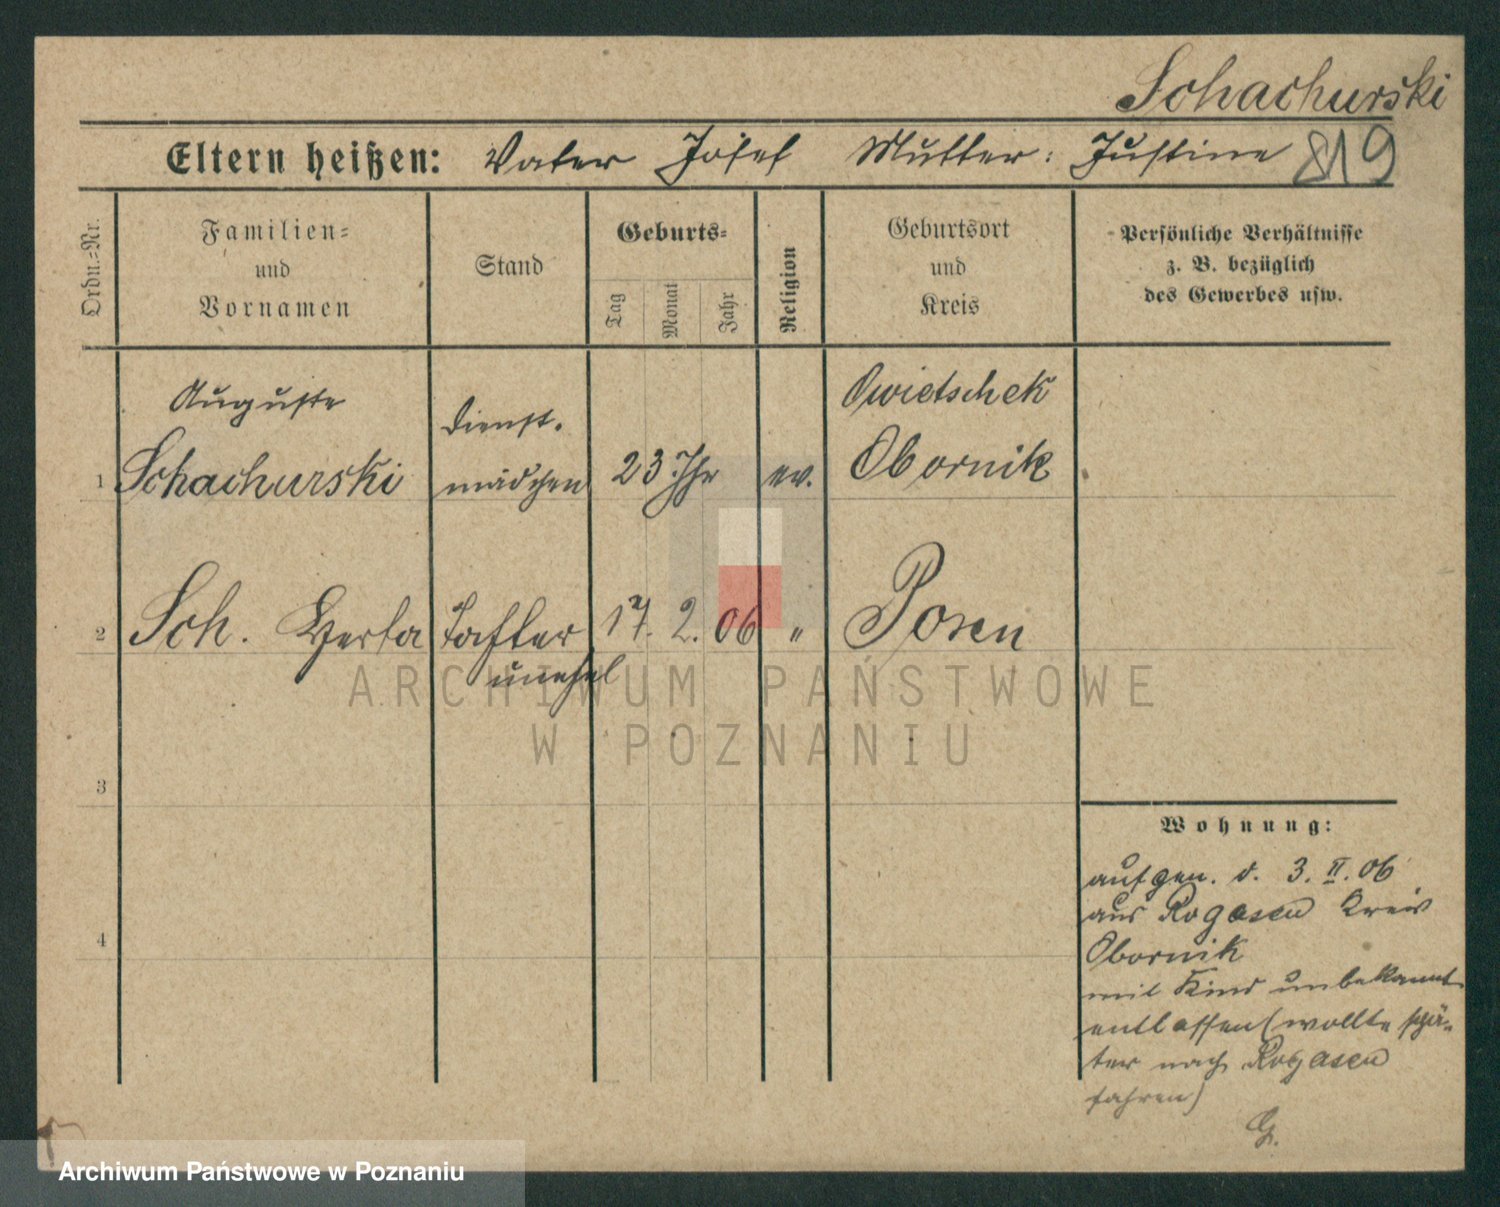 Schachurski
Eltern heißen: Vater Josef Mutter: Justine 819
Ordn.-Nr.
Familien=
und
Vornamen
Stand
Geburts=
Tag
Monat
Jahr
Religion
Geburtsort
und
Kreis
Persönliche Verhältnisse
z. B. bezüglich
des Gewerbes usw.
Auguste
Dienst.
Owietschek
1 Schachurski mädchen 23 Jhr ev. Obornik
2 Sch. Herta Tochter 17. 2. 06 " Posen
unehel
ARCHIWUM PAŃSTWOWE
W POZNANIU
3
4
Wohnung:
aufgen. d. 3. II. 06
aus Rogasen Kreis
Obornik
mit Kind unbekannt
entlassen (wollte spä-
ter nach Rogasen
fahren)
G.
Archiwum Państwowe w Poznaniu